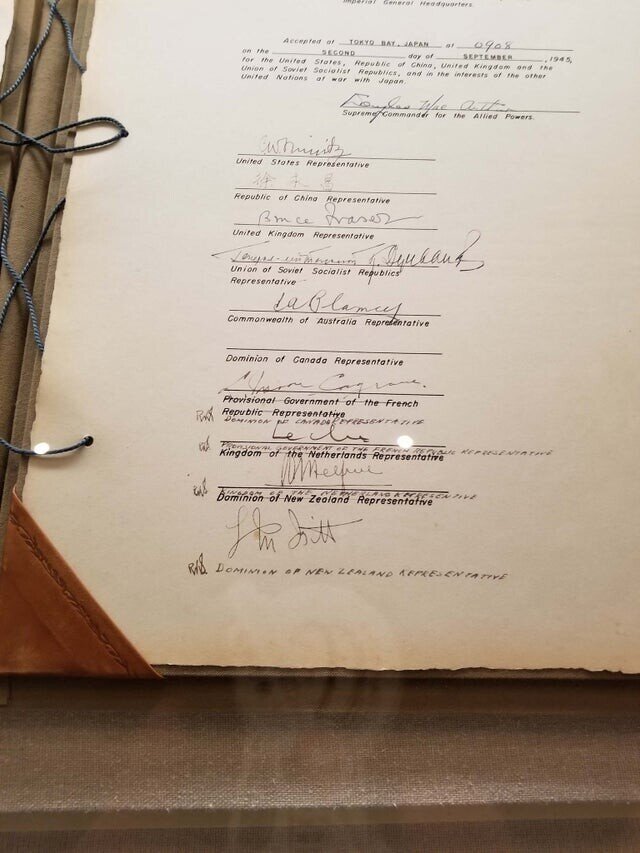 Imperial General Headquarters.
Accepted at TOKYO BAY, JAPAN at 0908
on the SECOND day of SEPTEMBER ,1945,
for the United States, Republic of China, United Kingdom and the
Union of Soviet Socialist Republics, and in the interests of the other
United Nations at war with Japan.
Douglas MacArthur
Supreme Commander for the Allied Powers.
CWNimitz
United States Representative
徐永昌
Republic of China Representative
Bruce Fraser
United Kingdom Representative
Union of Soviet Socialist Republics
Representative
T.A. Blamey
Commonwealth of Australia Representative
Dominion of Canada Representative
L. Moore Cosgrave.
Provisional Government of the French
Republic Representative
DOMINION OF CANADA REPRESENTATIVE
Leclerc
PROVISIONAL GOVERNMENT OF THE FRENCH REPUBLIC REPRESENTATIVE
Kingdom of the Netherlands Representative
Helfrich
KINGDOM OF THE NETHERLANDS REPRESENTATIVE
Dominion of New Zealand Representative
L M Isitt
DOMINION OF NEW ZEALAND REPRESENTATIVE